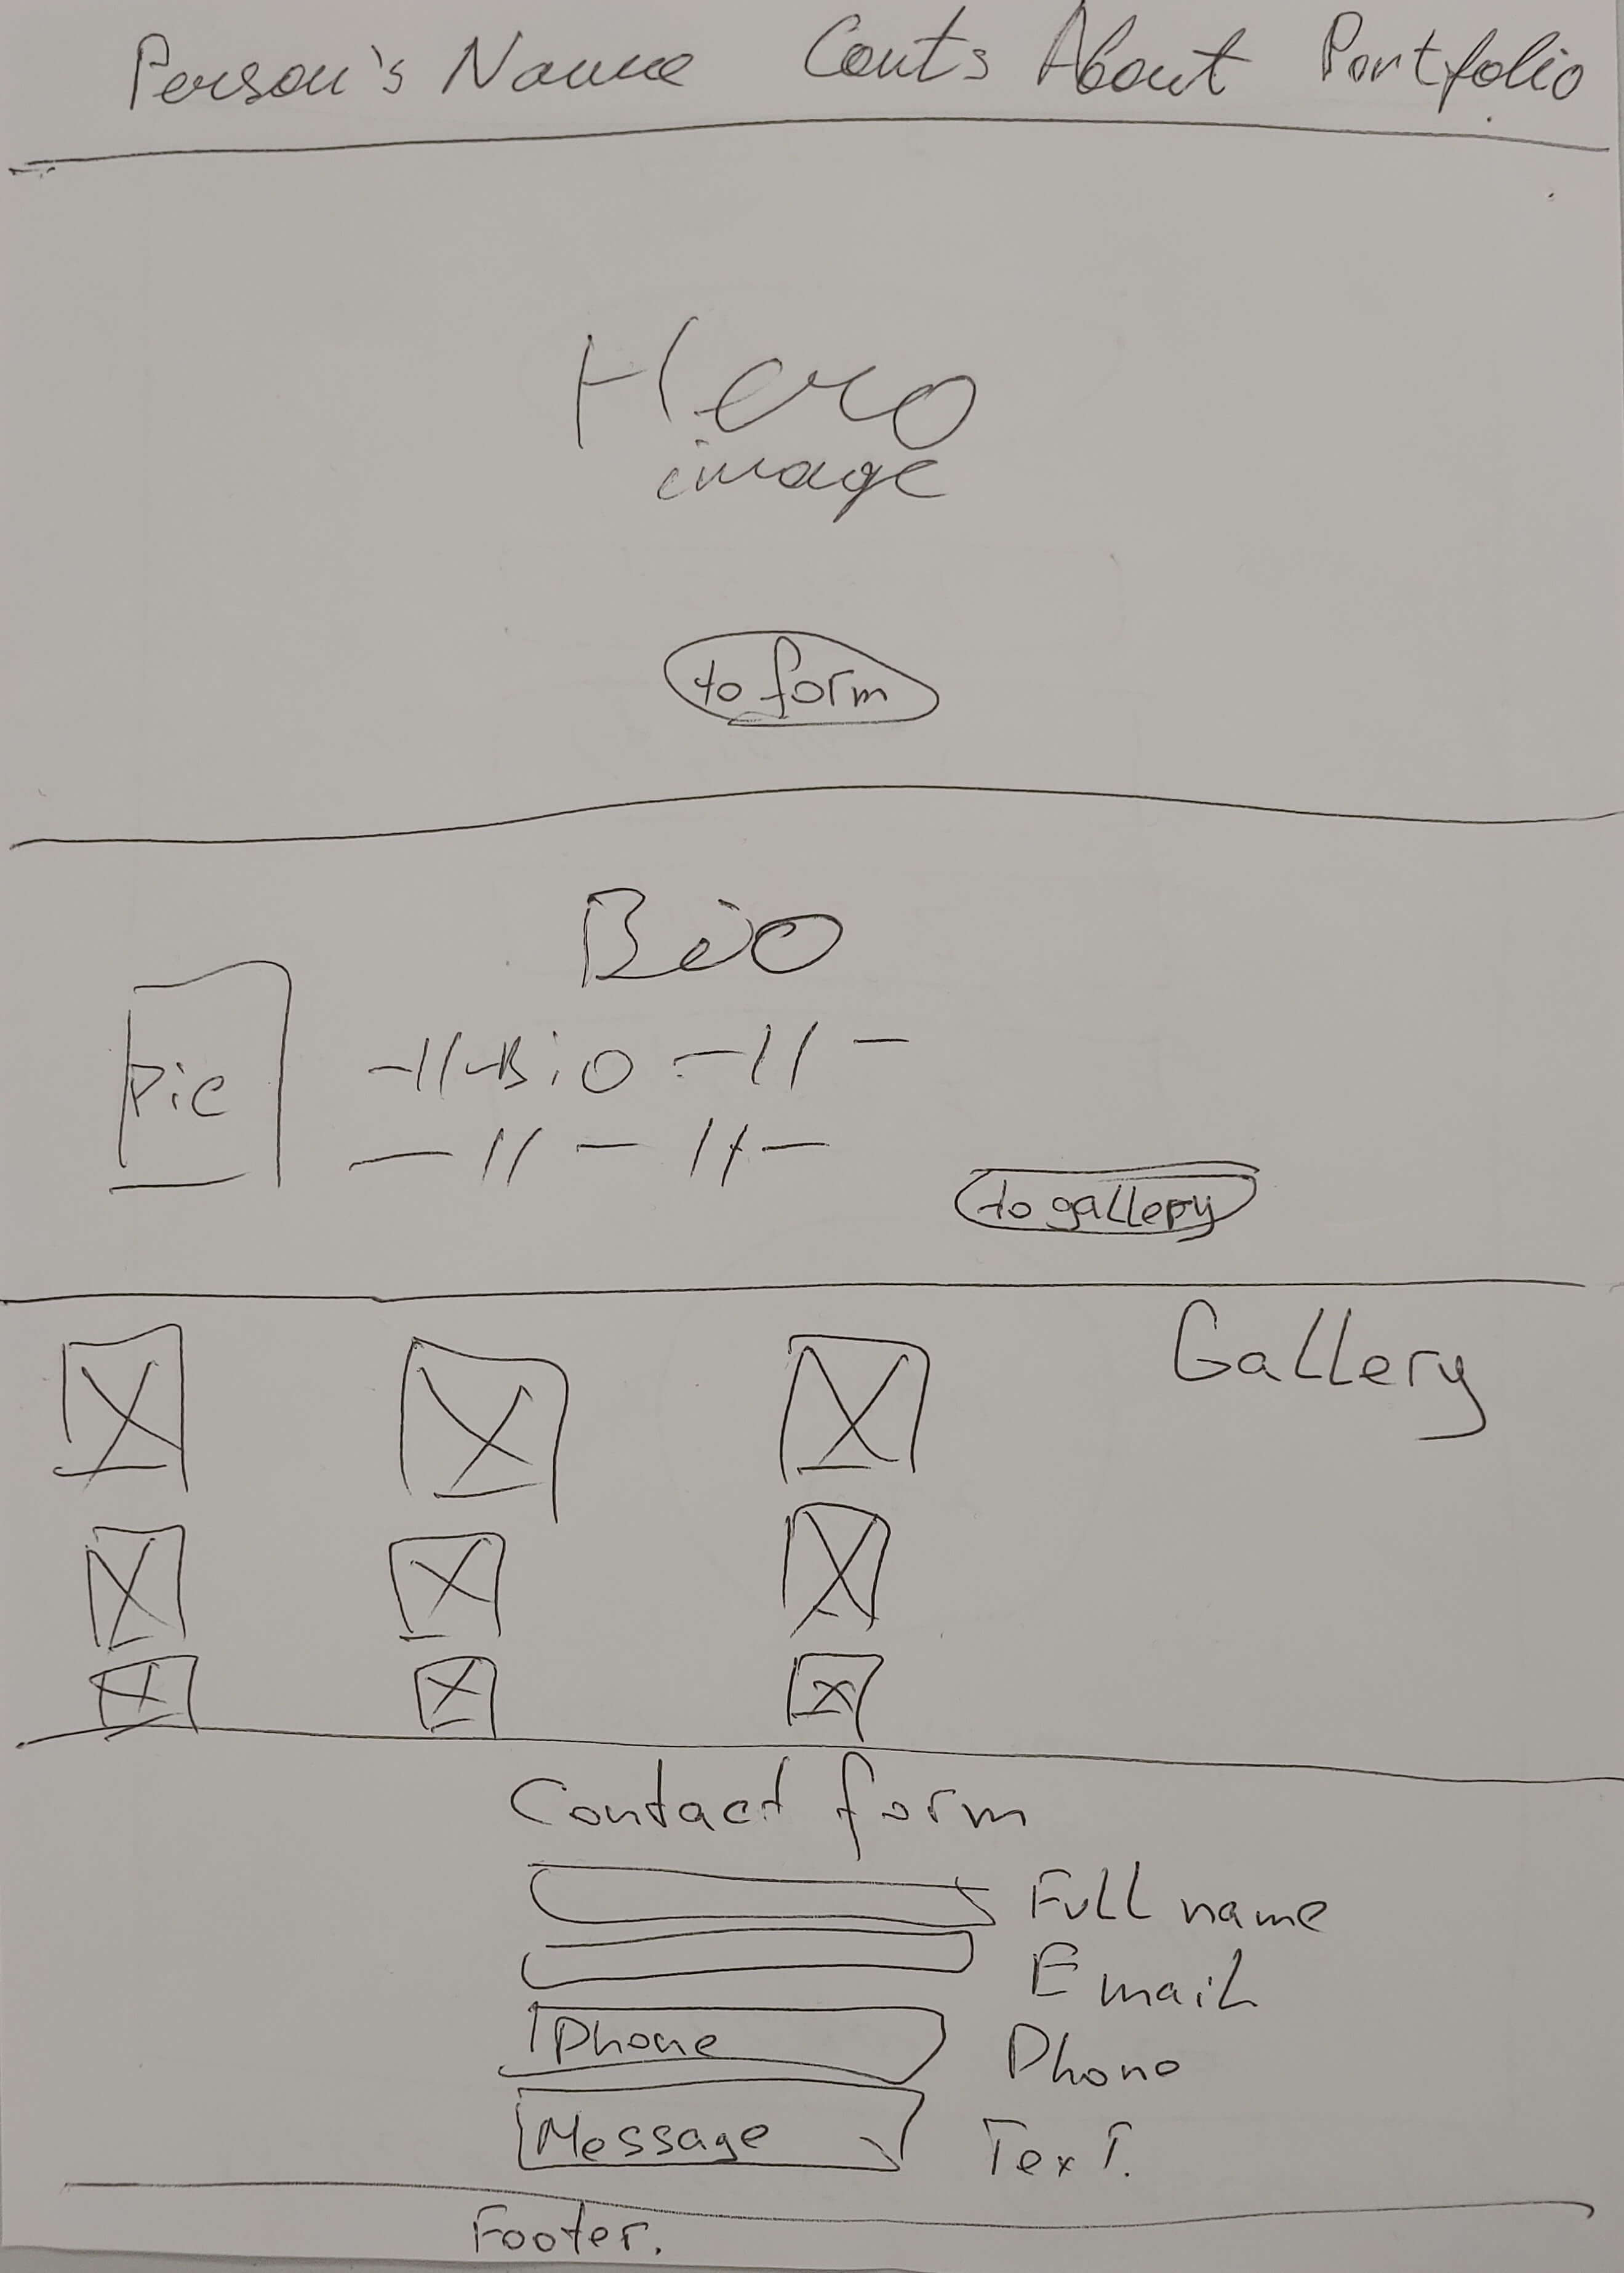 Person's Name Conts About Portfolio
Hero
image
to form
Bio
Pic
-//-Bio -//-
-//-//-
to gallery
Gallery
Contact form
Full name
Email
Phone Phone
Message Text.
Footer.